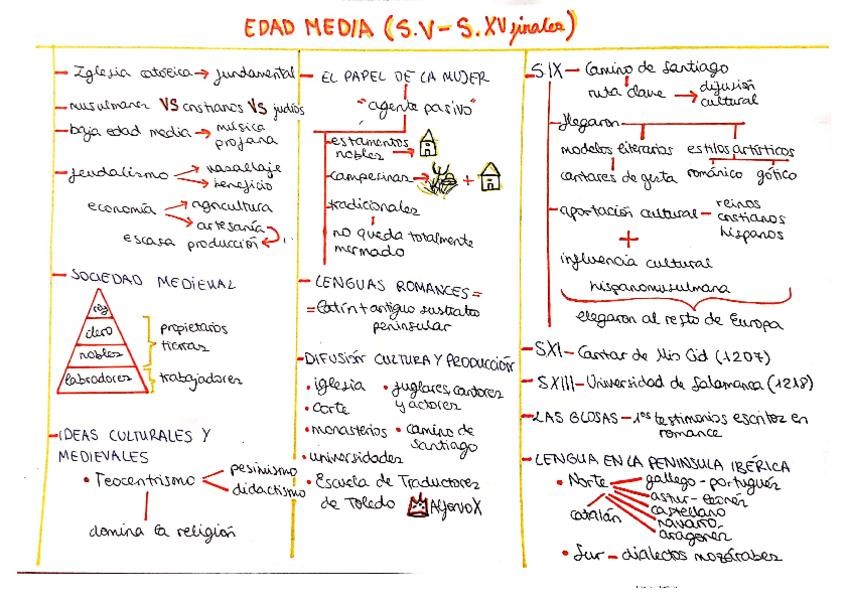 EDAD MEDIA (S.V - S.XV finales)
- Iglesia católica → fundamental
- musulmanes VS cristianos VS judíos
- baja edad media → música
profana
- feudalismo → vasallaje
→ beneficio
economía → agricultura
→ artesanía
escasa producción
- SOCIEDAD MEDIEVAL
rey
clero
nobles
labradores
propietarios
tierras
trabajadores
- IDEAS CULTURALES Y
MEDIEVALES
• Teocentrismo
pesimismo
didactismo
domina la religión
- EL PAPEL DE LA MUJER
"agente pasivo"
- estamentos
nobles →
- campesinas → +
- tradicionales
no queda totalmente
mermado
- LENGUAS ROMANCES =
= Latín + antiguo sustrato
peninsular
- DIFUSIÓN CULTURA Y PRODUCCIÓN
• iglesia
• corte
• monasterios
• universidades
• juglares, cantores
y actores
• camino de
Santiago
• Escuela de Traductores
de Toledo
Alfonso X
- S.IX - Camino de Santiago
ruta clave → difusión
cultural
- llegaron
modelos literarios
cantares de gesta
estilos artísticos
románico gótico
- aportación cultural - reinos
cristianos
hispanos
+
influencia cultural
hispanomusulmana
llegaron al resto de Europa
- SXI - Cantar de Mio Cid (1207)
- SXIII - Universidad de Salamanca (1218)
- LAS GLOSAS - 1os testimonios escritos en
romance
- LENGUA EN LA PENINSULA IBÉRICA
• Norte
gallego - portugués
astur - leonés
castellano
navarro-
aragonés
catalán
• Sur - dialectos mozárabes